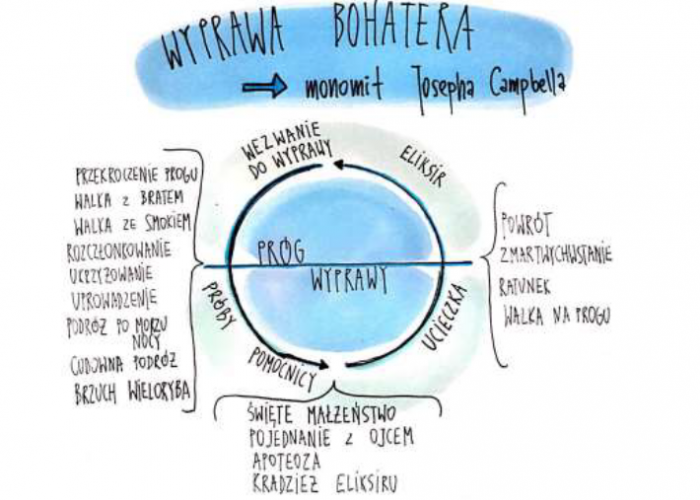 WYPRAWA BOHATERA
→ monomit Josepha Campbella
WEZWANIE
DO WYPRAWY
ELIKSIR
PRZEKROCZENIE PROGU
WALKA Z BRATEM
WALKA ZE SMOKIEM
ROZCZŁONKOWANIE
UKRZYŻOWANIE
UPROWADZENIE
PODRÓŻ PO MORZU
NOCY
CUDOWNA PODRÓŻ
BRZUCH WIELORYBA
PRÓG
WYPRAWY
PRÓBY
POMOCNICY
UCIECZKA
POWRÓT
ZMARTWYCHWSTANIE
RATUNEK
WALKA NA PROGU
ŚWIĘTE MAŁŻEŃSTWO
POJEDNANIE Z OJCEM
APOTEOZA
KRADZIEŻ ELIKSIRU